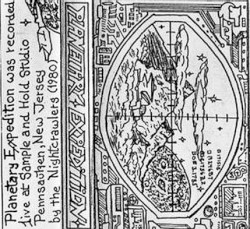 Planetary Expedition was recorded
live at Sample and Hold Studio
Pennsauken, New Jersey
by the Nightcrawlers (1980)
PLANETARY EXPEDITION